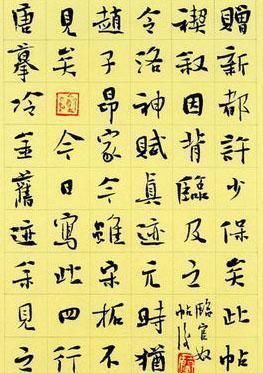 贈新都許少保矣此帖
禊叙因背臨及之
臨官奴
帖後
令洛神賦真迹元時猶
趙子昂家今雖宋拓不
見矣今日寫此四行
唐摹冷金舊迹余見之